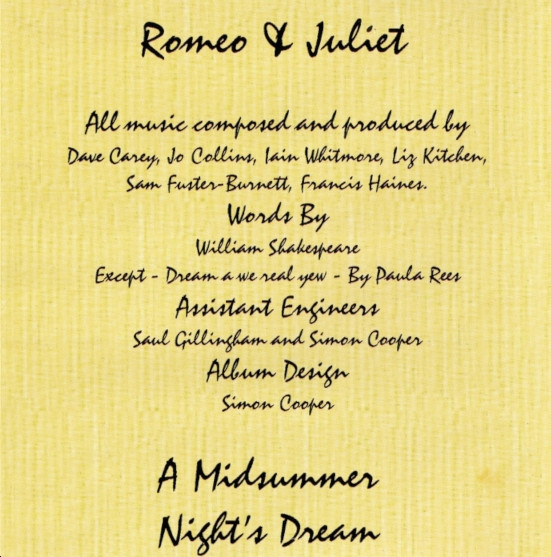 Romeo & Juliet
All music composed and produced by
Dave Carey, Jo Collins, Iain Whitmore, Liz Kitchen,
Sam Fuster-Burnett, Francis Haines.
Words By
William Shakespeare
Except - Dream a we real yew - By Paula Rees
Assistant Engineers
Saul Gillingham and Simon Cooper
Album Design
Simon Cooper
A Midsummer
Night's Dream